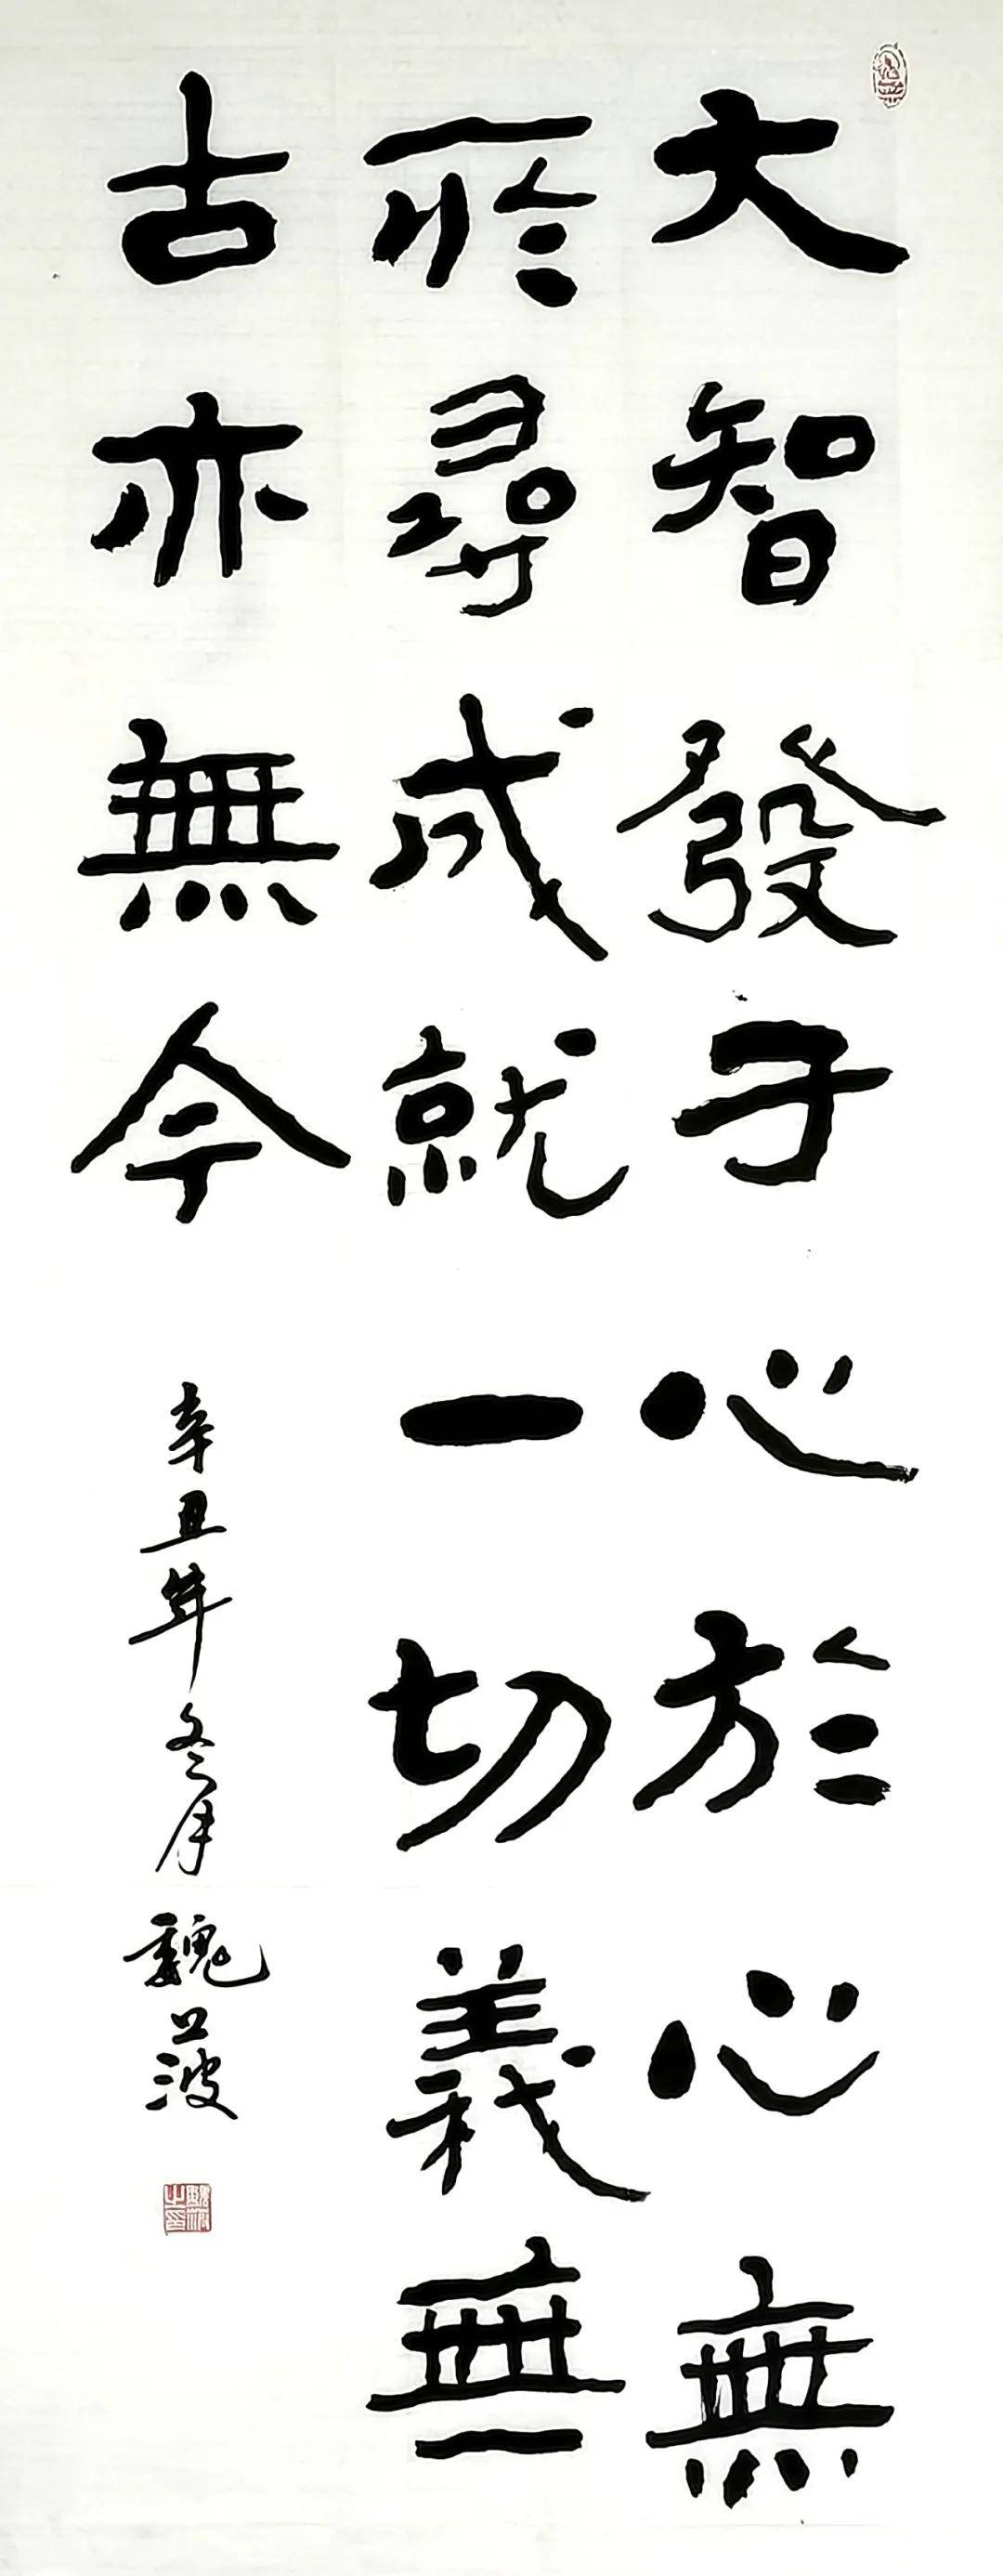 大智發于心於心無
所尋成就一切義無
古亦無今
辛丑年冬月 魏菠